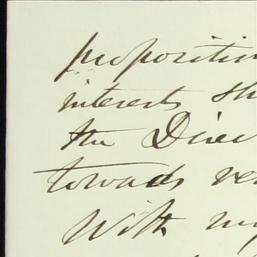 propositi
interests sh
the Direc
towards ve
With my